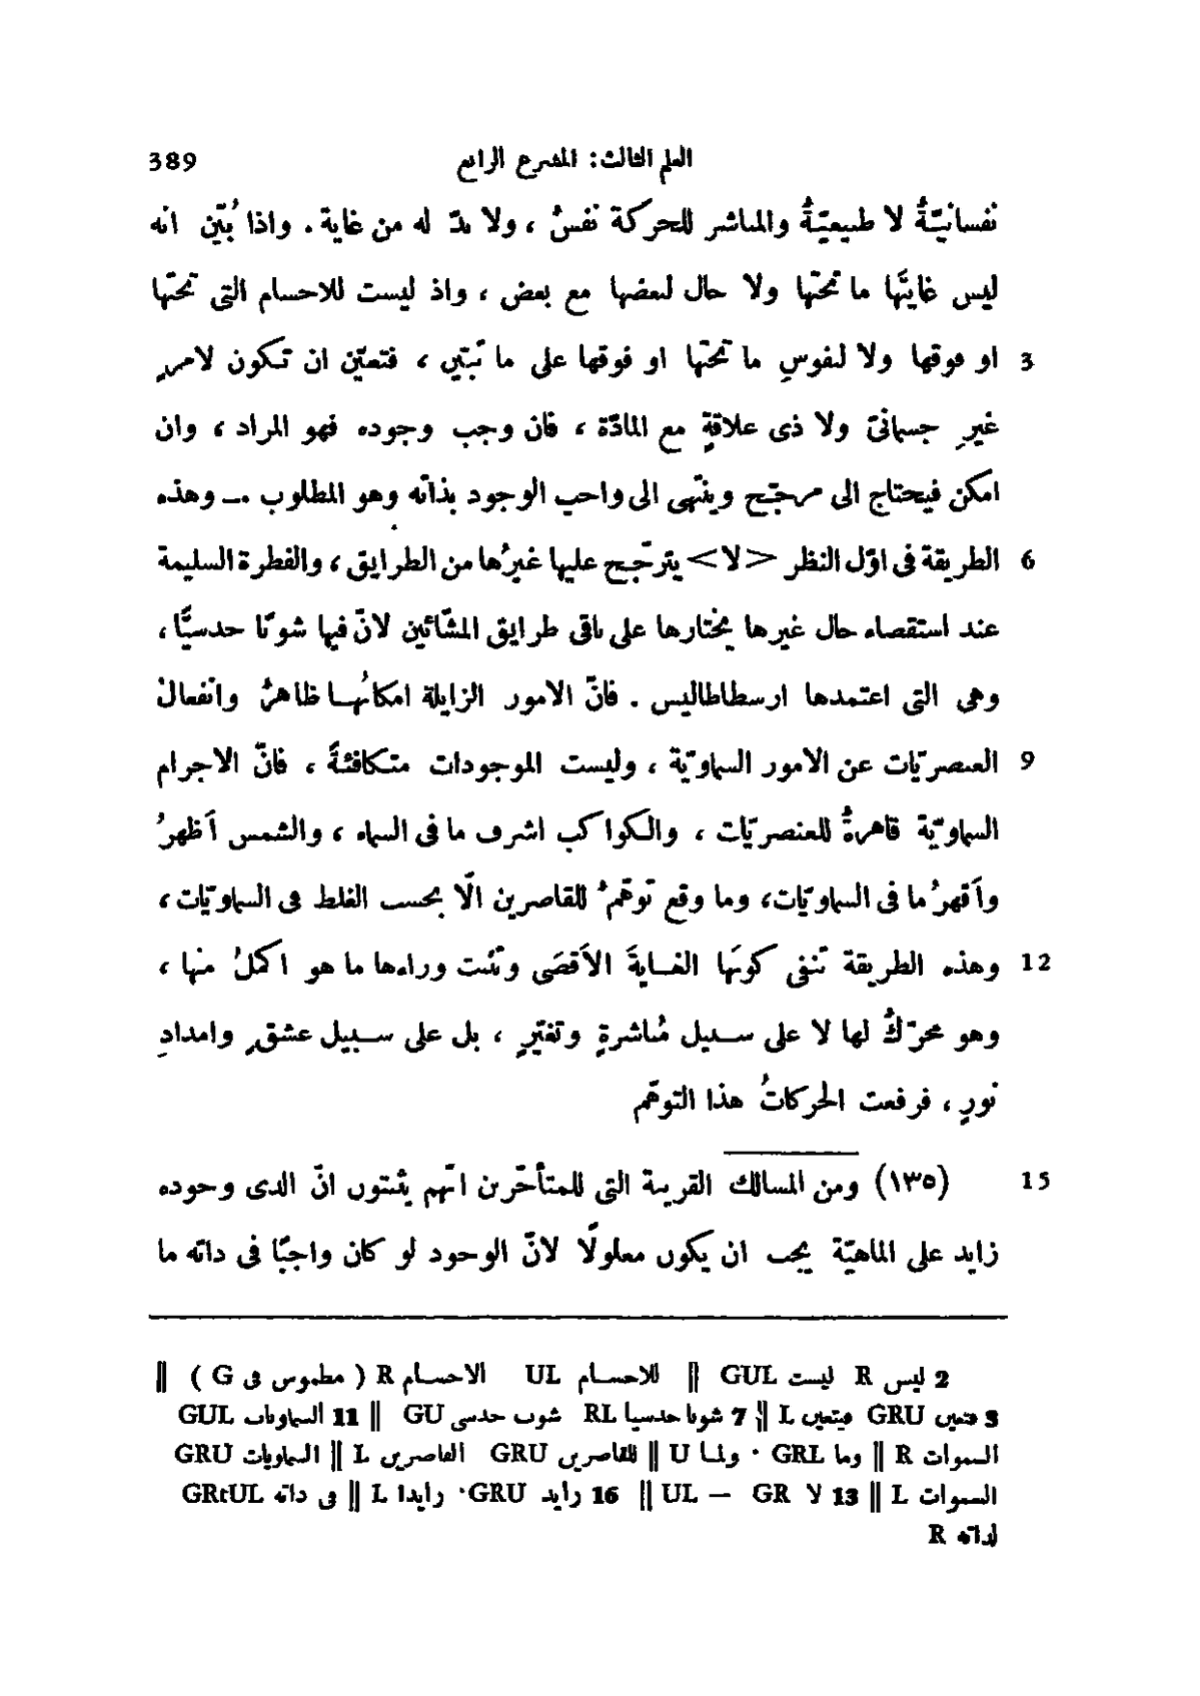 العلم الثالث: المشرع الرابع 389
نفسانيّةٌ لا طبيعيّةٌ والمباشر للحركة نفسٌ ، ولا بدّ له من غاية . واذا بُيّن انه
ليس غايتَها ما تحتَها ولا حال لبعضها مع بعض ، واذ ليست للاجسام التى تحتَها
3 او فوقها ولا لنفوسِ ما تحتَها او فوقها على ما تَبيّن ، فتعيّن ان تكون لامرٍ
غيرِ جسمانىّ ولا ذى علاقةٍ مع المادّة ، فان وجب وجوده فهو المراد ، وان
امكن فيحتاج الى مرجّح وينتهى الى واجب الوجود بذاته وهو المطلوب .ــ وهذه
6 الطريقة فى اوّل النظر <لا> يترجّح عليها غيرُها من الطرايق ، والفطرة السليمة
عند استقصاء حال غيرها يختارها على باقى طرايق المشّائين لانّ فيها شوبًا حدسيًّا ،
وهى التى اعتمدها ارسطاطاليس . فانّ الامور الزايلة امكانُها ظاهرٌ وانفعالُ
9 العنصريّات عن الامور السماويّة ، وليست الموجودات متكافئةً ، فانّ الاجرام
السماويّة قاهرةٌ للعنصريّات ، والكواكب اشرف ما فى السماء ، والشمس أظهرُ
وأقهرُ ما فى السماويّات، وما وقع توهّمٌ للقاصرين الّا بحسب الغلط فى السماويّات ،
12 وهذه الطريقة تنفى كونَها الغايةَ الأقصَى وتثبت وراءها ما هو اكملُ منها ،
وهو محرّكٌ لها لا على سبيل مُباشرةٍ وتغيّرٍ ، بل على سبيل عشقٍ وامدادِ
نورٍ ، فرفعت الحركاتُ هذا التوهّم
15 (١٣٥) ومن المسالك القريبة التى للمتأخّرين انّهم يثبتون انّ الذى وجوده
زايد على الماهيّة يجب ان يكون معلولًا لانّ الوجود لو كان واجبًا فى ذاته ما
2 ليس R ليست GUL || للاجسام UL الاجسام R ( مطموس فى G ) ||
3 فتعين GRU فيتعين L || 7 شوبا حدسيا RL شوب حدسى GU || 11 السماويات GUL
السموات R || وما GRL · ولما U || للقاصرين GRU القاصرين L || السماويات GRU
السموات L || 13 لا GR — UL || 16 زايد GRU· زايدا L || فى ذاته GRtUL
لذاته R